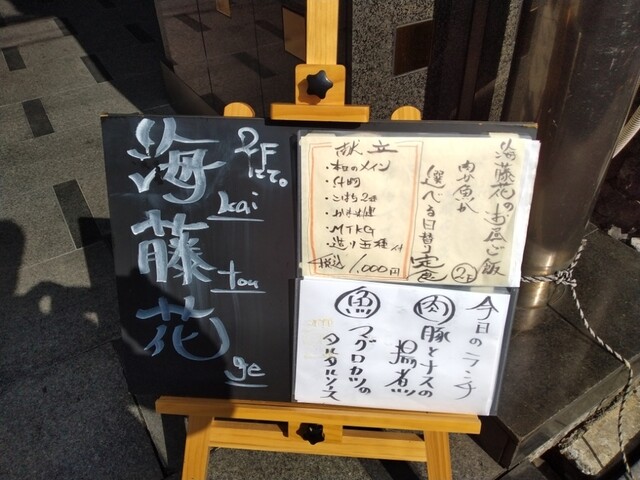 2Fにて。
海藤花
kai
tou
ge
海藤花のお昼ご飯
肉か魚か
選べる日替り定食
2F
献立
・本日のメイン
・小鉢2種
・MTKG
税込 1,000円
今日のランチ
肉 豚とナスの
揚煮
魚 マグロカツの
タルタルソース